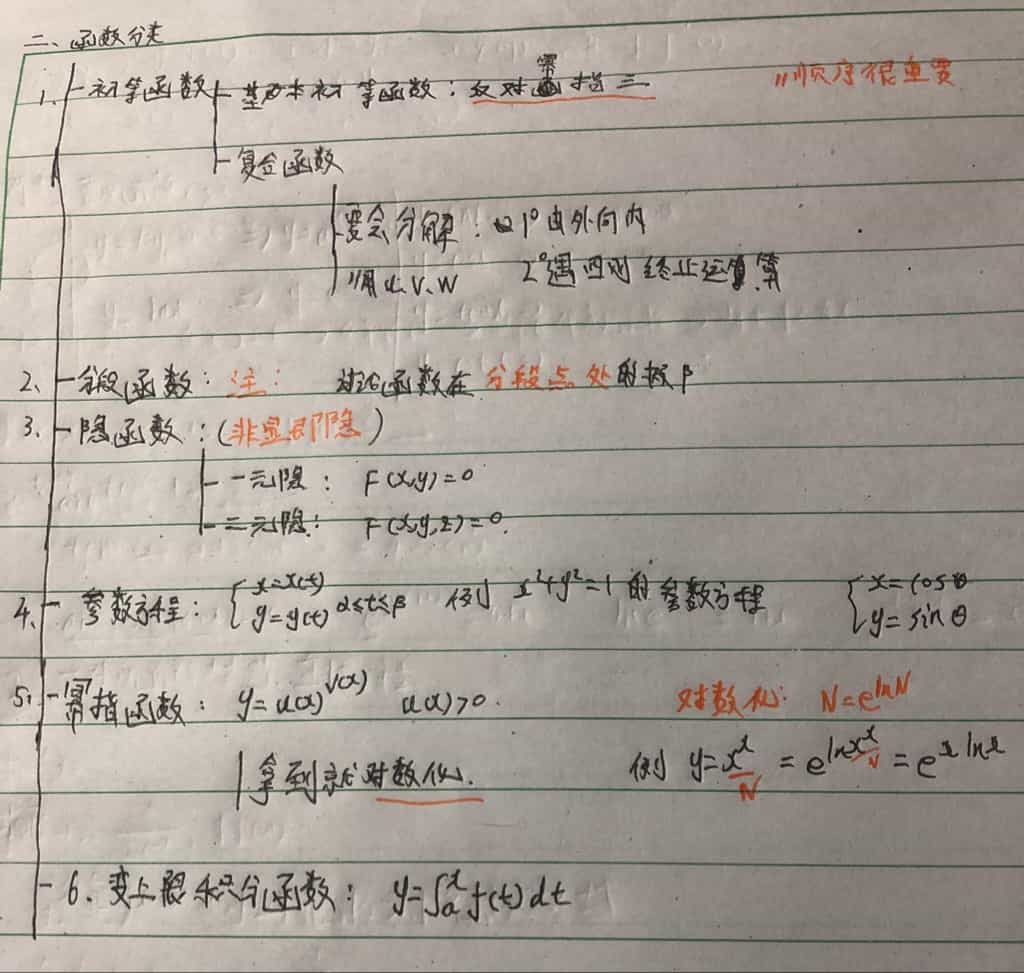 二、函数分类
1. 初等函数 基本初等函数：反对幂指三 "顺序很重要
复合函数
要会分解：1° 由外向内
用 u、v、w 2° 遇四则终止运算
2、分段函数：注： 讨论函数在分段点处的极β
3、隐函数：(非显即隐)
一元隐： F(x,y)=0
二元隐： F(x,y,z)=0.
4、参数方程： { x=x(t) y=y(t) α≤t≤β 例 x²+y²=1 的参数方程 { x=cosθ y=sinθ
5、幂指函数： y=u(x)^v(x) u(x)>0. 对数化： N=e^lnN
拿到就对数化. 例 y=x^x N = e^lnx^x N = e^x lnx
6. 变上限积分函数： y=∫ₐˣ f(t) dt